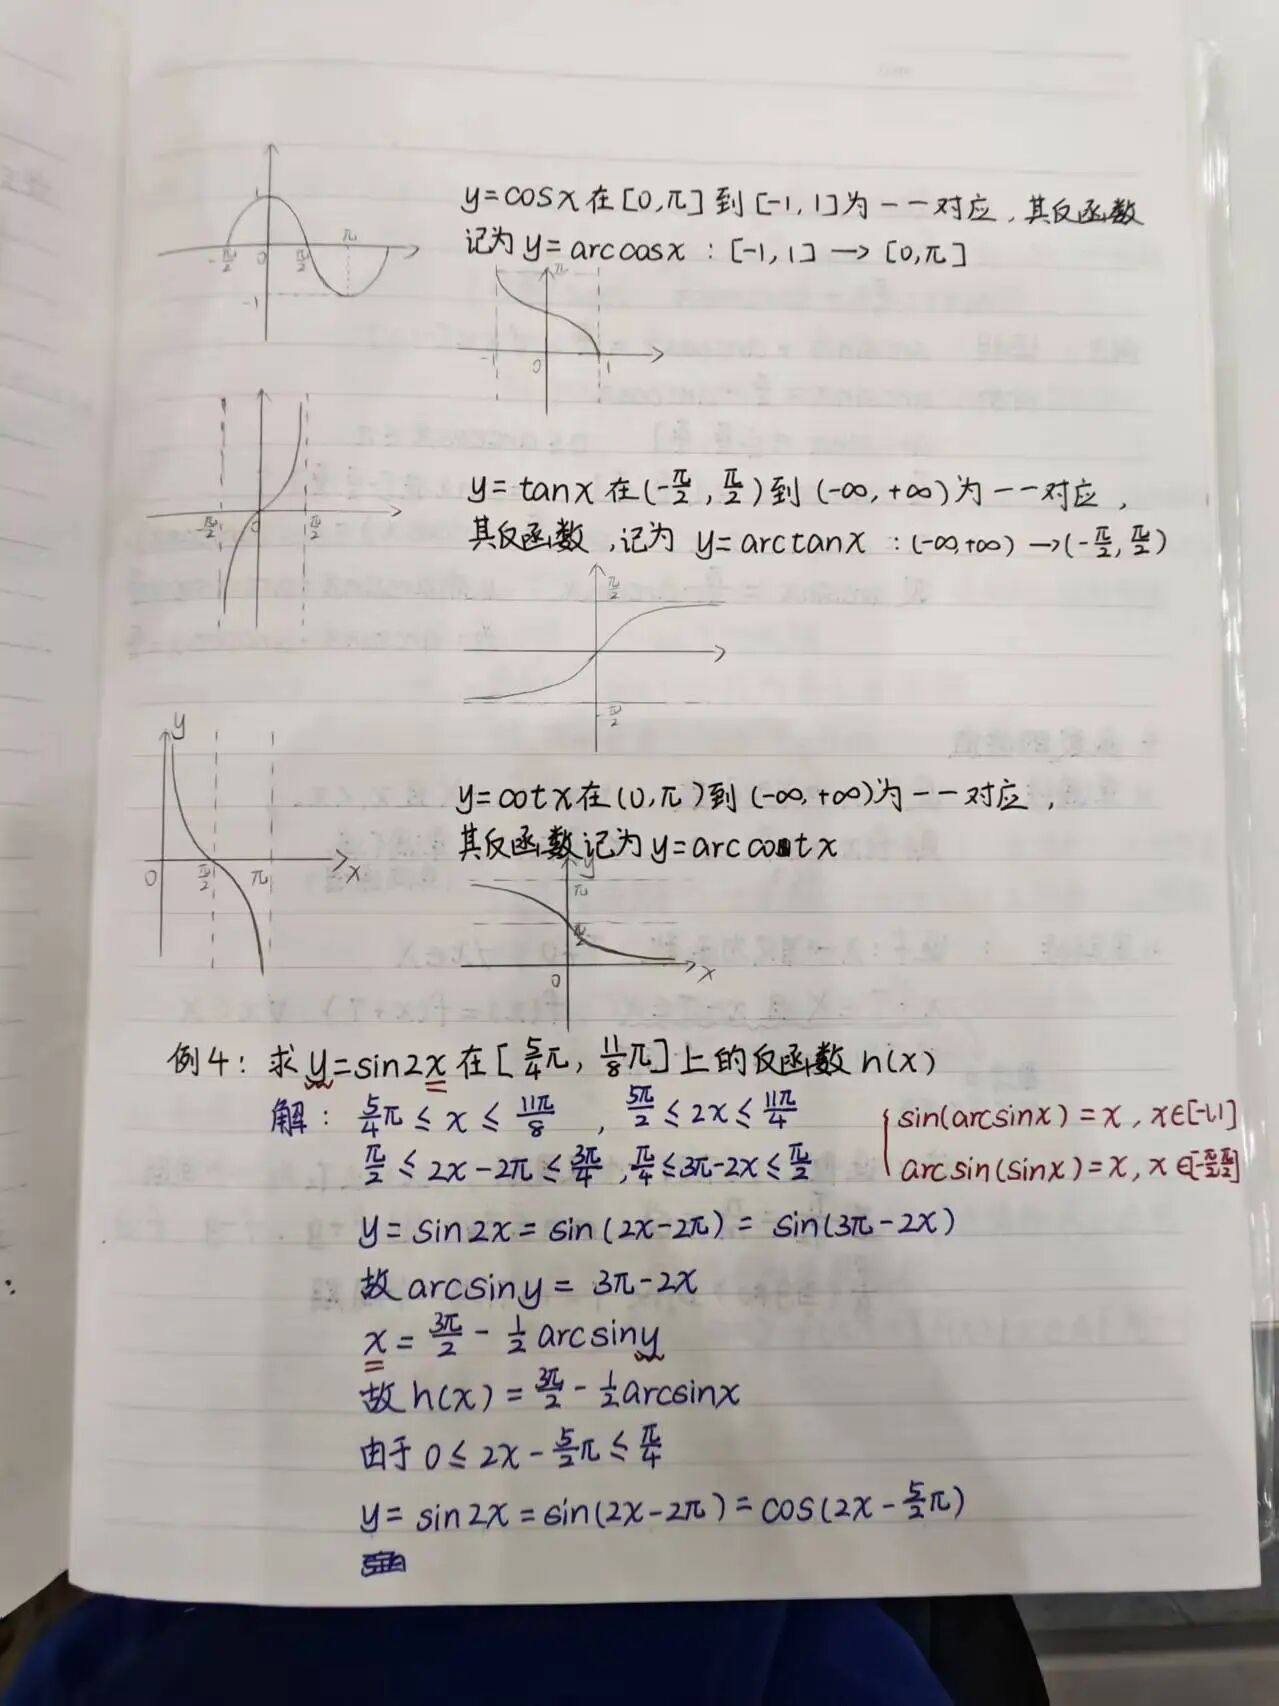 y=cosx在[0,π]到[-1,1]为一一对应,其反函数
记为y=arccosx:[-1,1]→[0,π]
1
-π/2 0 π/2 π
-1
π
-1 0 1
y=tanx在(-π/2,π/2)到(-∞,+∞)为一一对应,
其反函数,记为 y=arctanx:(-∞,+∞)→(-π/2,π/2)
-π/2 0 π/2
π/2
-π/2
y
0 π/2 π x
y=cotx在(0,π)到(-∞,+∞)为一一对应,
其反函数记为y=arccotx
y
π
π/2
0 x
例4:求y=sin2x在[5/4π,11/8π]上的反函数h(x)
解: 5/4π≤x≤11π/8 , 5π/2≤2x≤11π/4
π/2≤2x-2π≤3π/4 ,π/4≤3π-2x≤π/2
sin(arcsinx)=x,x∈[-1,1]
arcsin(sinx)=x,x∈[-π/2,π/2]
y=sin2x=sin(2x-2π)=sin(3π-2x)
故arcsiny=3π-2x
x=3π/2-1/2arcsiny
故h(x)=3π/2-1/2arcsinx
由于0≤2x-5/2π≤π/4
y=sin2x=sin(2x-2π)=cos(2x-5/2π)